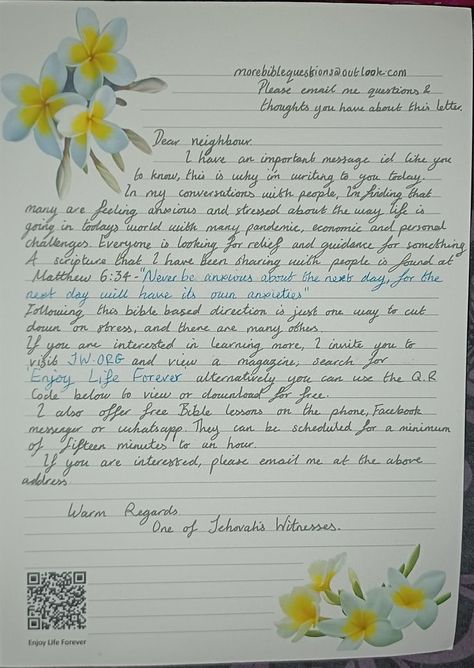 morebiblequestions@outlook.com
Please email me questions &
thoughts you have about this letter.
Dear neighbour.
I have an important message id like you
to know, this is why im writing to you today.
In my conversations with people, Im finding that
many are feeling anxious and stressed about the way life is
going in todays world with many pandemic, economic and personal
challenges. Everyone is looking for relief and guidance for something
A scripture that I have been sharing with people is found at
Matthew 6:34 - "Never be anxious about the next day, for the
next day will have its own anxieties"
Following this bible based direction is just one way to cut
down on stress, and there are many others.
If you are interested in learning more, I invite you to
visit JW.ORG and view a magazine, search for
'Enjoy Life Forever' alternatively you can use the Q.R
Code below to view or download for free.
I also offer free Bible lessons on the phone, Facebook
messeger or whatsapp. They can be scheduled for a minimum
of fifteen minutes to an hour.
If you are interested, please email me at the above
address
Warm Regards
One of Jehovah's Witnesses.
Enjoy Life Forever